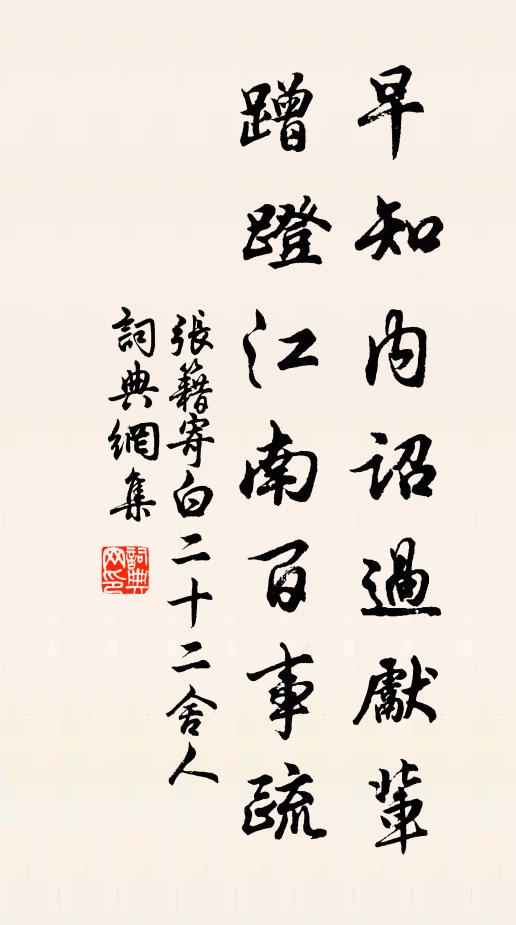 早知内詔過獻輩
蹭蹬江南百事疏
張籍寄白二十二舍人
詞典網集
詞典
网印